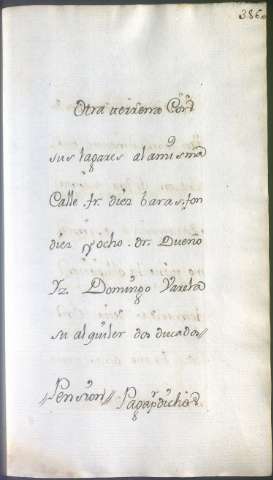 386
Otra
sus lagares a la misma
Calle fr. diez baras fon
diez y ocho. dr. Dueno
Yz. Domingo Varela
su alquiler dos ducados //
// Pension // Paga